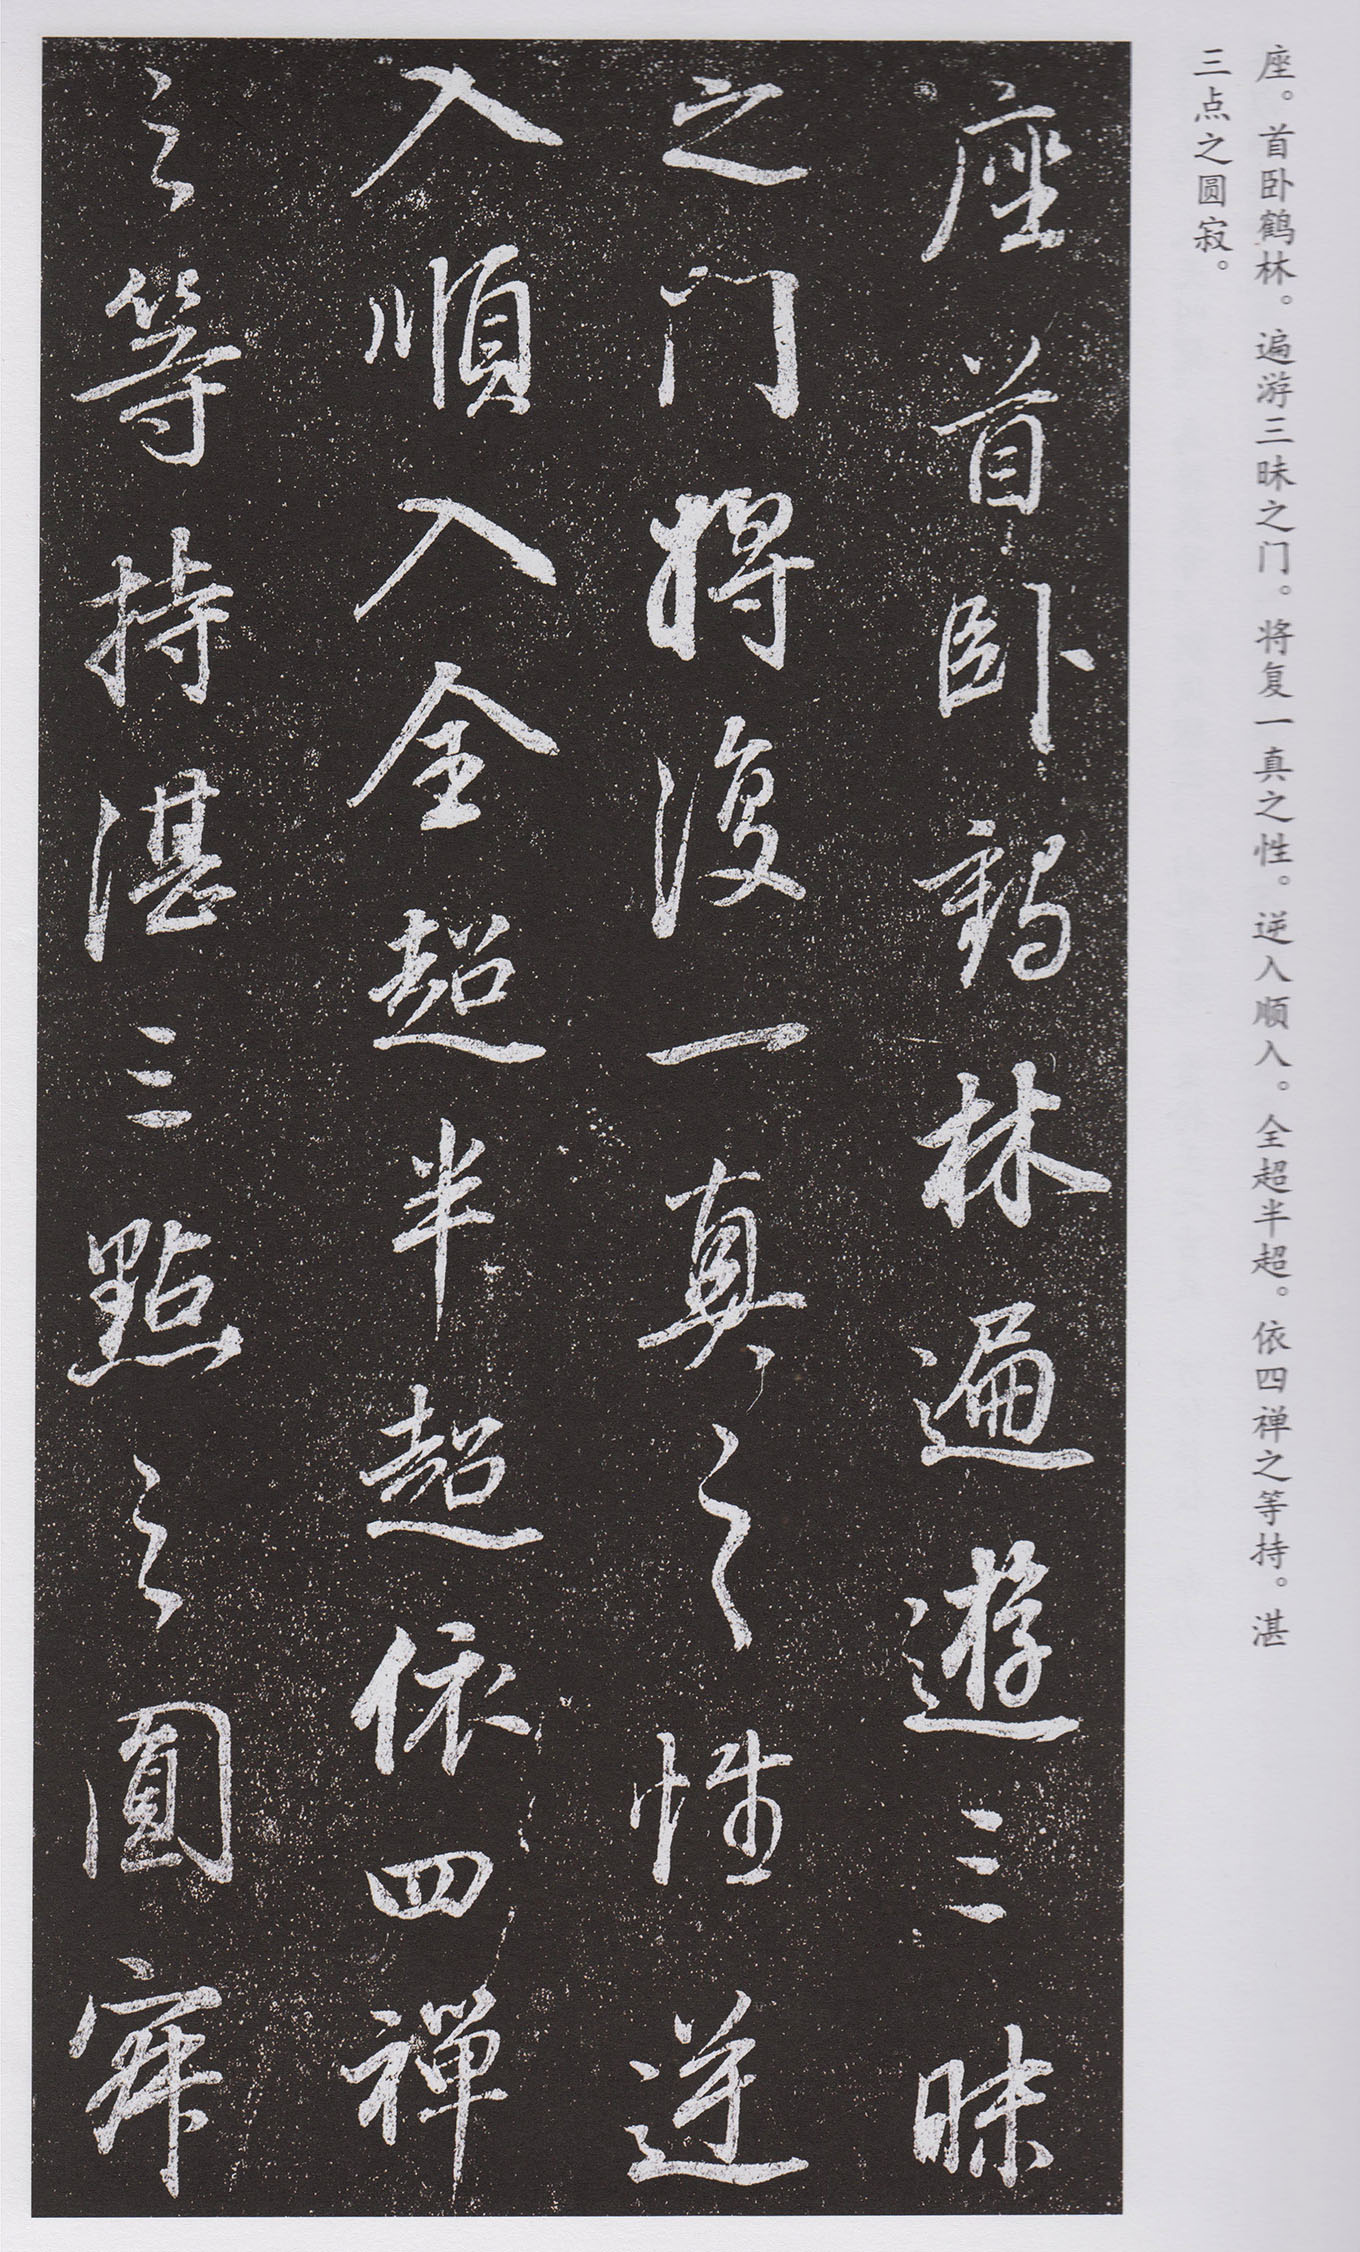 座。首卧鹤林。遍游三昧之门。将复一真之性。逆入顺入。全超半超。依四禅之等持。湛
三点之圆寂。
座首卧鶴林遍遊三昧
之门將復一真之性逆
入順入全超半超依四禪
之等持湛三點之圓寂